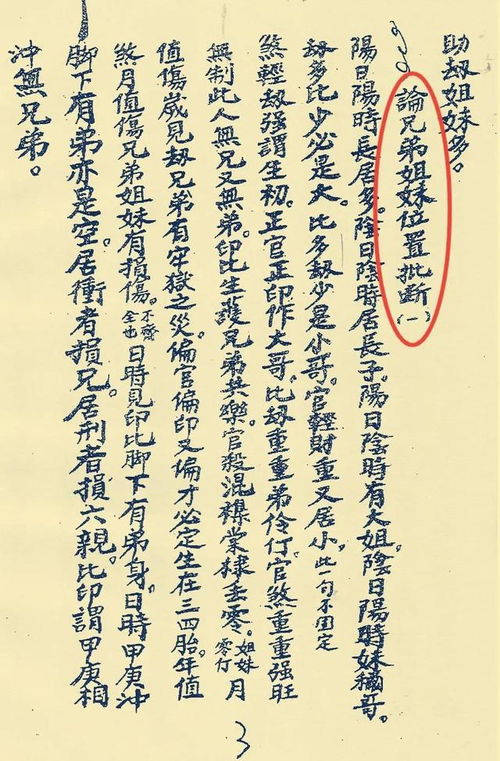 助刼姐妹多。
論兄弟姐妹位置批断(一)
陽日陽時長居多。陰日陰時居長子。陽日陰時有大姐。陰日陽時妹稱哥。
刼多比少必是大。比多刼少是小哥。官輕財重又居小。此一句不固定
煞輕刼强謂生初。正官正印作大哥。比刼重重弟伶仃。官煞重重强旺
無制此人無兄又無弟。印比生護兄弟共樂。官殺混襍棠棣凋零。姐妹零仃月
值傷嵗見刼兄弟有牢獄之災。偏官偏印又偏才必定生在三四胎。年值
煞月值傷兄弟姐妹有損傷。不齊全也日時見印比脚下有弟身。日時甲庚沖
脚下有弟亦是空。居衝者損兄。居刑者損六親。比印謂甲庚相
沖無兄弟。
3